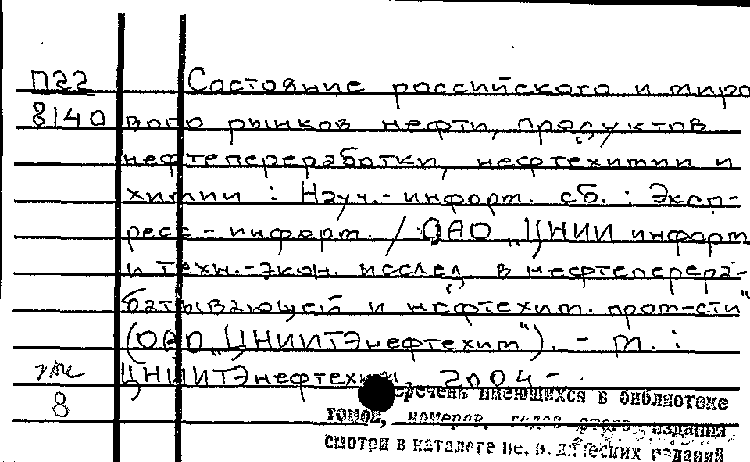 П22 Состояние российского и миро
8140 вого рынков нефти, продуктов
нефтепереработки, нефтехимии и
химии : Науч.-информ. сб. : Эксп-
ресс-информ. / ОАО „ЦНИИ информ.
и техн.-экон. исслед. в нефтеперера-
батывающей и нефтехим. пром-сти"
(ОАО „ЦНИИТЭнефтехим"). - М. :
ЦНИИТЭнефтехим, 2004 - .
8
Перечень имеющихся в библиотеке
томов, номеров, годов этого издания
смотри в каталоге периодических изданий